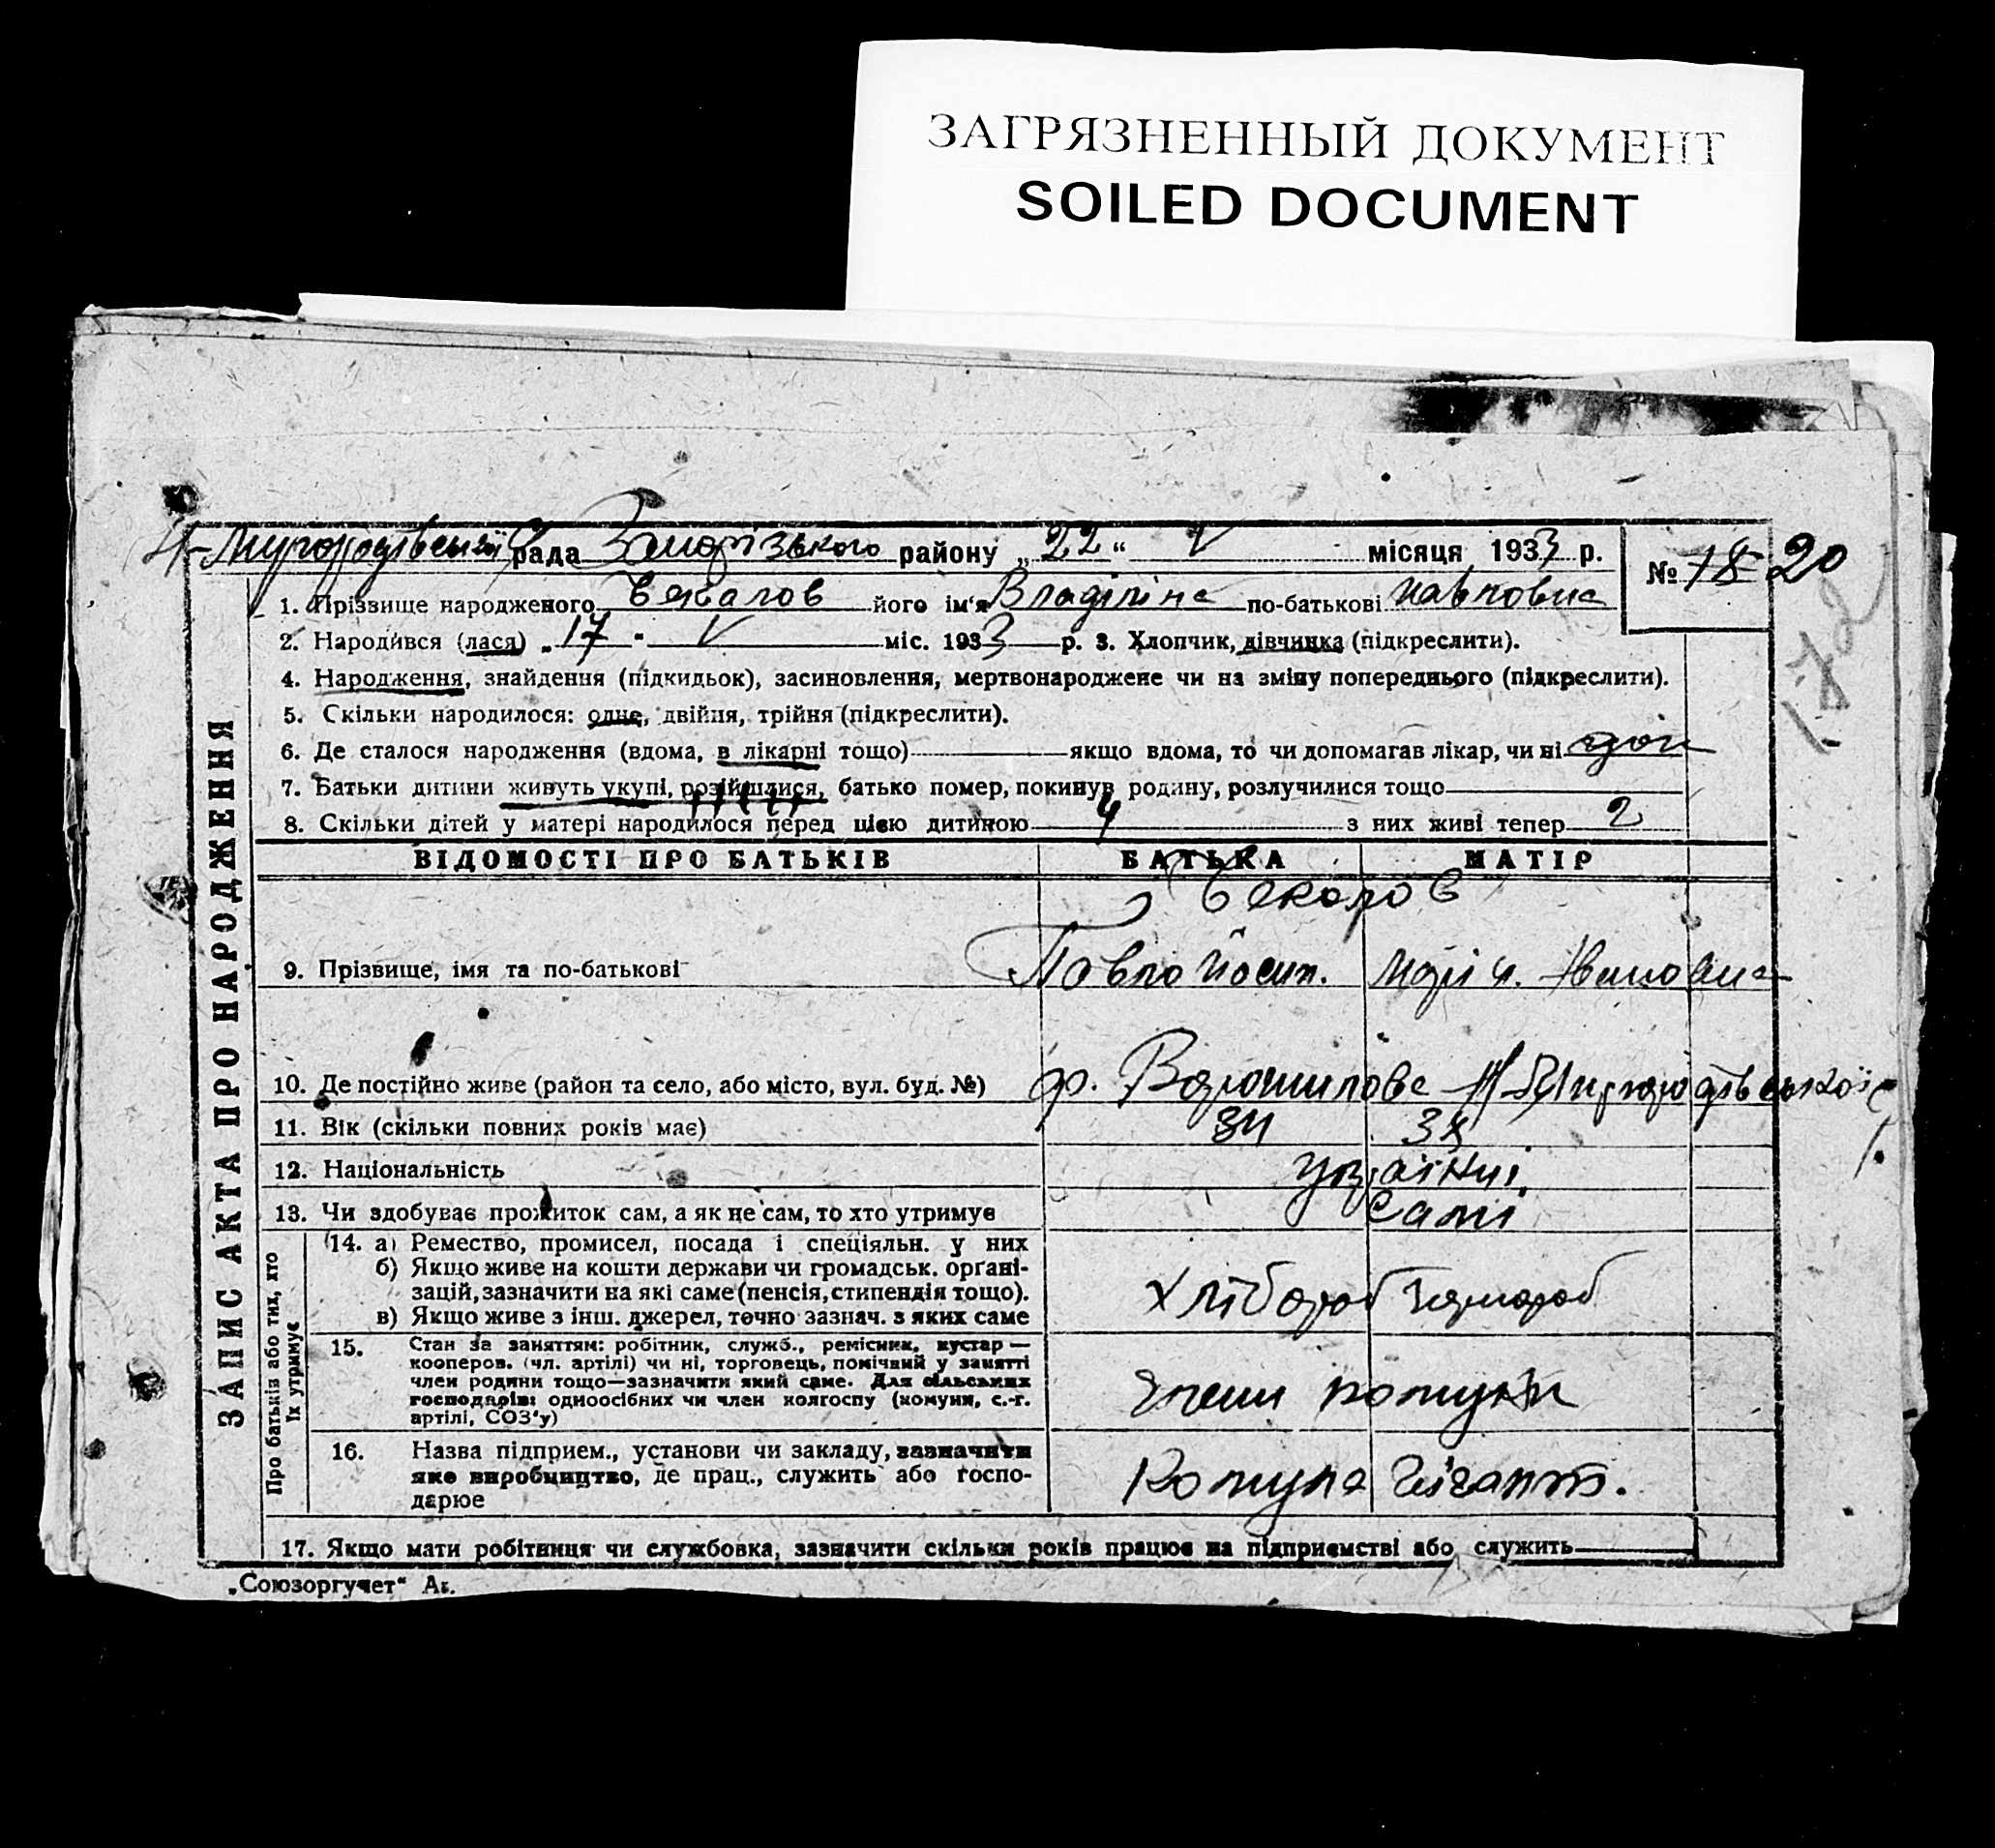 ЗАГРЯЗНЕННЫЙ ДОКУМЕНТ
SOILED DOCUMENT
рада Запорізького району „22“ V місяця 1933 р.
№ 18 20
1. Прізвище народженого його ім'я Владіліна по-батькові Павловна
2. Народився (лася) „17 " V міс. 1933 р. 3. Хлопчик, дівчинка (підкреслити).
4. Народження, знайдення (підкидьок), засиновлення, мертвонароджене чи на зміну попереднього (підкреслити).
5. Скільки народилося: одне, двійня, трійня (підкреслити).
6. Де сталося народження (вдома, в лікарні тощо) якщо вдома, то чи допомагав лікар, чи ні
7. Батьки дитини живуть укупі, розійшлися, батько помер, покинув родину, розлучилися тощо
8. Скільки дітей у матері народилося перед цією дитиною 4 з них живі тепер 2
ЗАПИС АКТА ПРО НАРОДЖЕННЯ
ВІДОМОСТІ ПРО БАТЬКІВ БАТЬКА МАТІР
9. Прізвище, імя та по-батькові Павло Йосип. Марія Івановна
10. Де постійно живе (район та село, або місто, вул. буд. №) Ворошилова
11. Вік (скільки повних років має)
12. Національність Українці
13. Чи здобуває прожиток сам, а як не сам, то хто утримує Самі
Про батьків або тих, хто їх утримує
14. а) Ремество, промисел, посада і спеціяльн. у них
б) Якщо живе на кошти держави чи громадськ. органі-
зацій, зазначити на які саме (пенсія, стипендія тощо).
в) Якщо живе з інш. джерел, точно зазнач. з яких саме
Хлібороб Хлібороб
15. Стан за заняттям: робітник, служб., ремісник, кустар —
кооперов. (чл. артілі) чи ні, торговець, помічний у занятті
член родини тощо—зазначити який саме. Для сільських
господарів: одноосібних чи член колгоспу (комуни, с.-г.
артілі, СОЗ'у)
Члени комуни
16. Назва підприєм., установи чи закладу, зазначити
яке виробництво, де прац., служить або госпо-
дарює
Комуна Гігант.
17. Якщо мати робітниця чи службовка, зазначити скільки років працює на підприємстві або служить
„Союзоргучет“